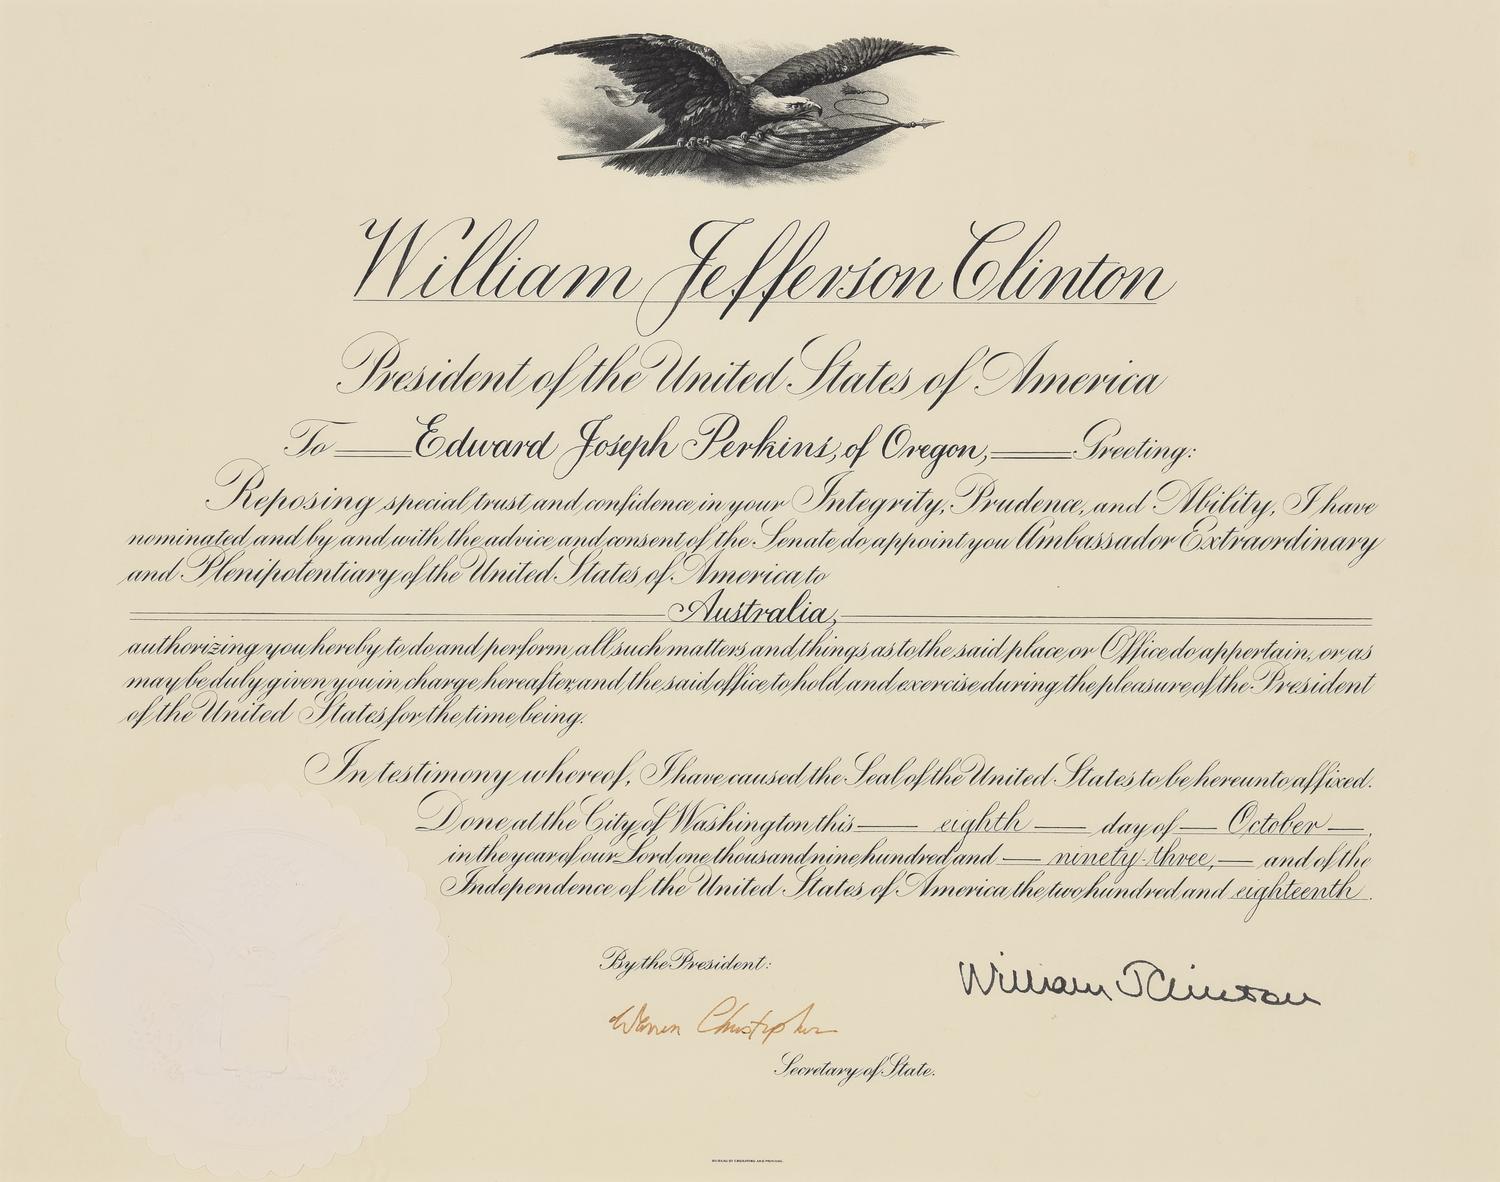 William Jefferson Clinton
President of the United States of America
To Edward Joseph Perkins, of Oregon, Greeting:
Reposing special trust and confidence in your Integrity, Prudence, and Ability, I have
nominated, and by and with the advice and consent of the Senate do appoint you Ambassador Extraordinary
and Plenipotentiary of the United States of America to
Australia,
authorizing you hereby to do and perform all such matters and things as to the said place or Office do appertain, or as
may be duly given you in charge hereafter, and the said office to hold and exercise during the pleasure of the President
of the United States for the time being.
In testimony whereof, I have caused the Seal of the United States to be hereunto affixed.
Done at the City of Washington this eighth day of October,
in the year of our Lord one thousand nine hundred and ninety-three, and of the
Independence of the United States of America the two hundred and eighteenth.
By the President:
William J Clinton
Warren Christopher
Secretary of State.
BUREAU OF ENGRAVING AND PRINTING